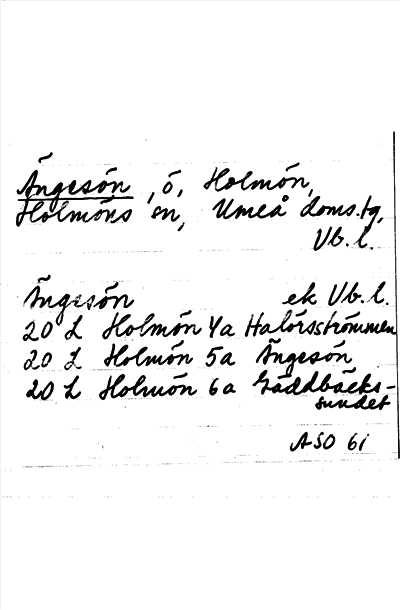 Ängesön, ö, Holmön,
Holmöns sn, Umeå doms.tg,
Vb.l.
Ängesön ek Vb.l.
20 L Holmön 4a Halörsströmmen
20 L Holmön 5a Ängesön
20 L Holmön 6a Gäddbäcks-
sundet
ASO 61